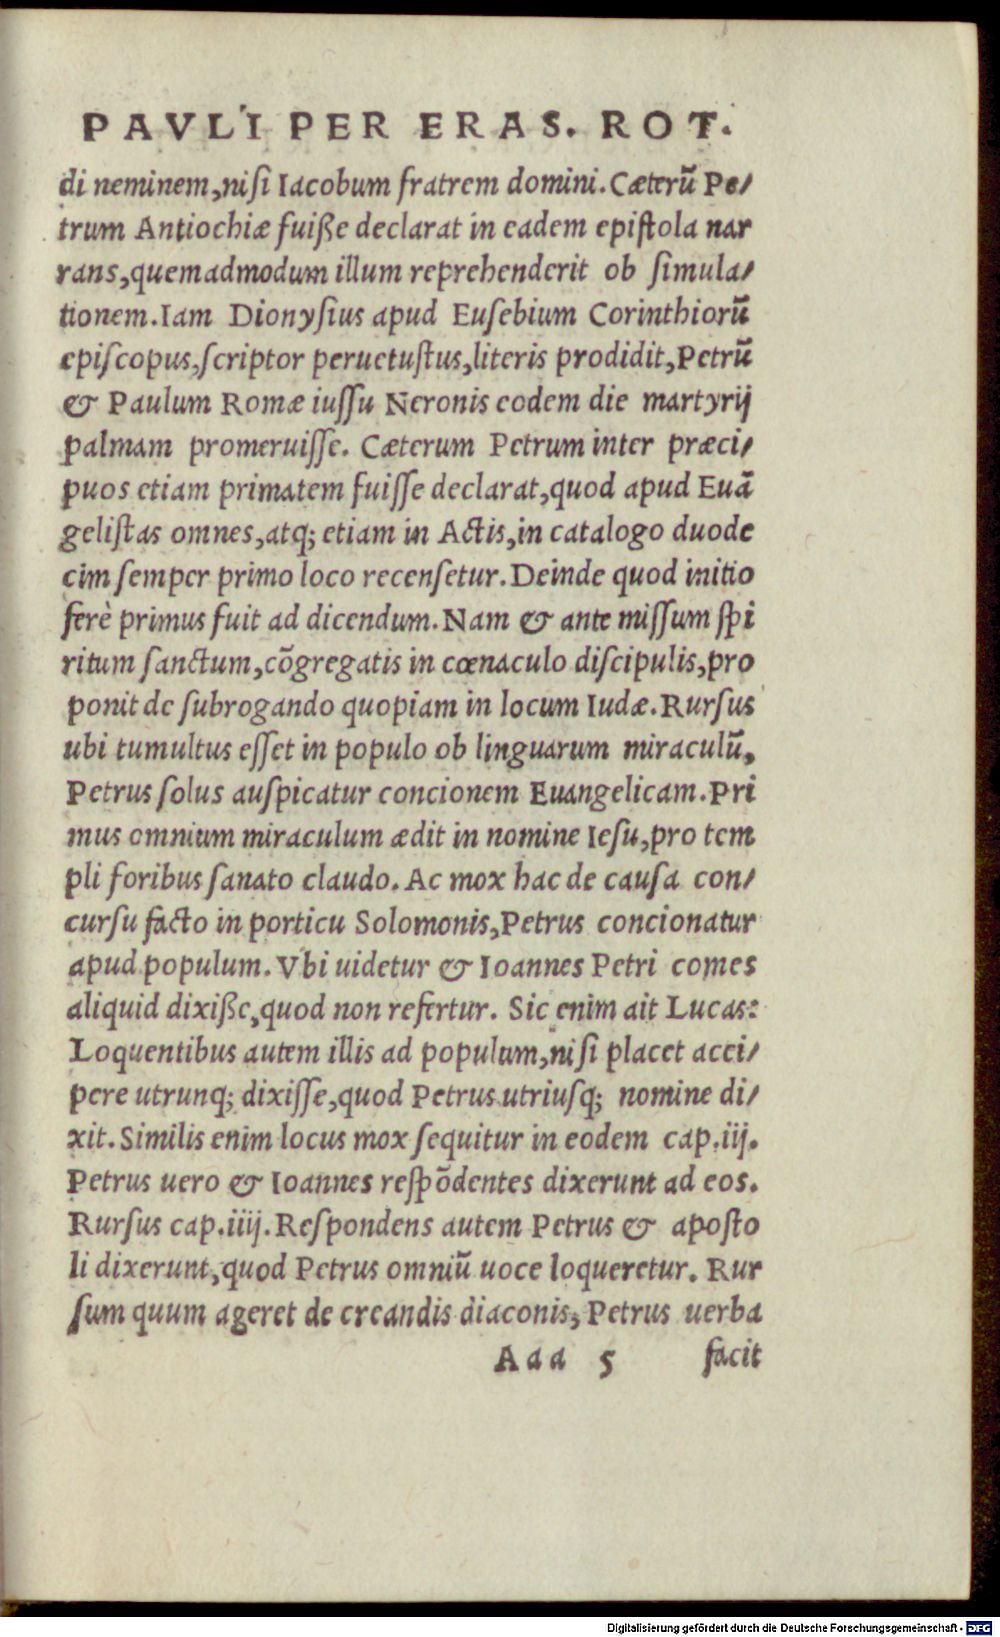 PAVLI PER ERAS. ROT.
di neminem,nisi Iacobum fratrem domini. Cæterũ Pe/
trum Antiochiæ fuiße declarat in eadem epistola nar
rans,quemadmodum illum reprehenderit ob simula/
tionem.Iam Dionysius apud Eusebium Corinthiorũ
episcopus,scriptor peruetustus,literis prodidit,Petrũ
& Paulum Romæ iussu Neronis eodem die martyrij
palmam promeruisse. Cæterum Petrum inter præci/
puos etiam primatem fuisse declarat,quod apud Euã
gelistas omnes,atq; etiam in Actis,in catalogo duode
cim semper primo loco recensetur. Deinde quod initio
ferè primus fuit ad dicendum. Nam & ante missum spi
ritum sanctum,cõgregatis in cœnaculo discipulis,pro
ponit de subrogando quopiam in locum Iudæ. Rursus
ubi tumultus esset in populo ob linguarum miraculũ,
Petrus solus auspicatur concionem Euangelicam.Pri
mus omnium miraculum ædit in nomine Iesu,pro tem
pli foribus sanato claudo. Ac mox hac de causa con/
cursu facto in porticu Solomonis,Petrus concionatur
apud populum. Vbi uidetur & Ioannes Petri comes
aliquid dixiße,quod non refertur. Sic enim ait Lucas:
Loquentibus autem illis ad populum,nisi placet acci/
pere utrunq; dixisse,quod Petrus utriusq; nomine di/
xit. Similis enim locus mox sequitur in eodem cap.iij.
Petrus uero & Ioannes respõdentes dixerunt ad eos.
Rursus cap.iiij. Respondens autem Petrus & aposto
li dixerunt,quod Petrus omniũ uoce loqueretur. Rur
sum quum ageret de creandis diaconis, Petrus uerba
Aaa 5 facit
Digitalisierung gefördert durch die Deutsche Forschungsgemeinschaft - DFG